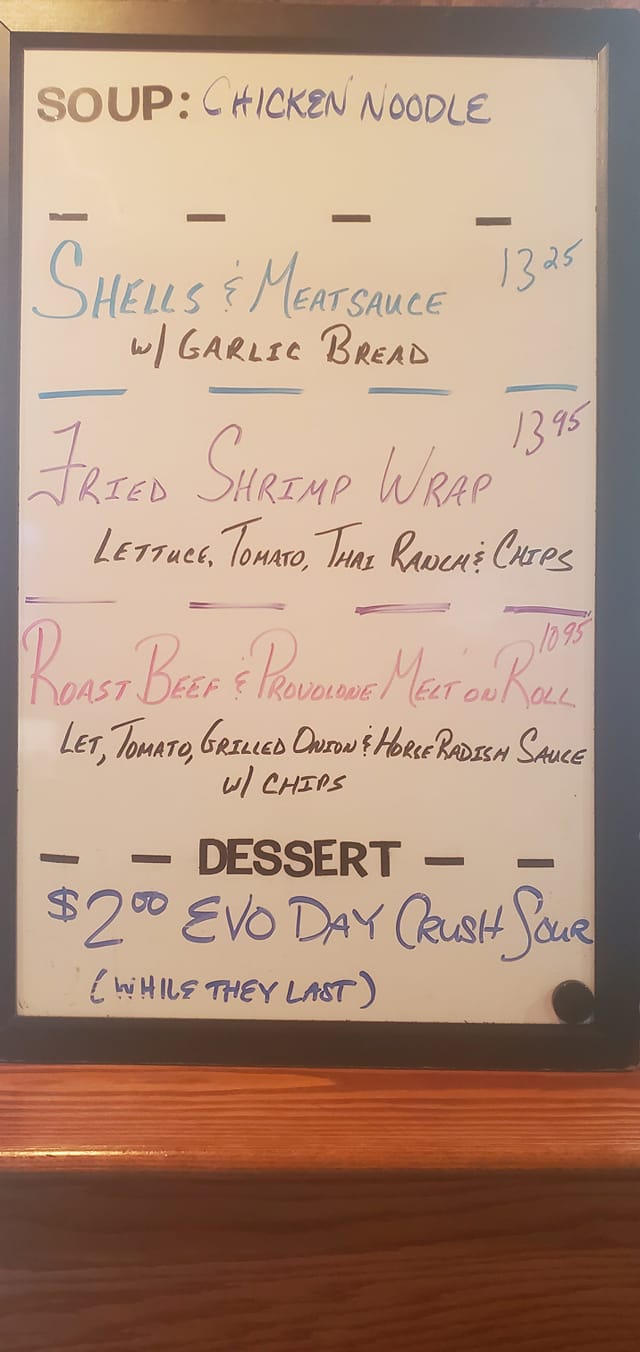 SOUP: CHICKEN NOODLE
SHELLS & MEATSAUCE 13 25
w/ GARLIC BREAD
FRIED SHRIMP WRAP 13 95
LETTUCE, TOMATO, THAI RANCH & CHIPS
ROAST BEEF & PROVOLONE MELT ON ROLL 10 95
LET, TOMATO, GRILLED ONION & HORSE RADISH SAUCE
w/ CHIPS
DESSERT
$2 00 EVO DAY CRUSH SOUR
(WHILE THEY LAST)